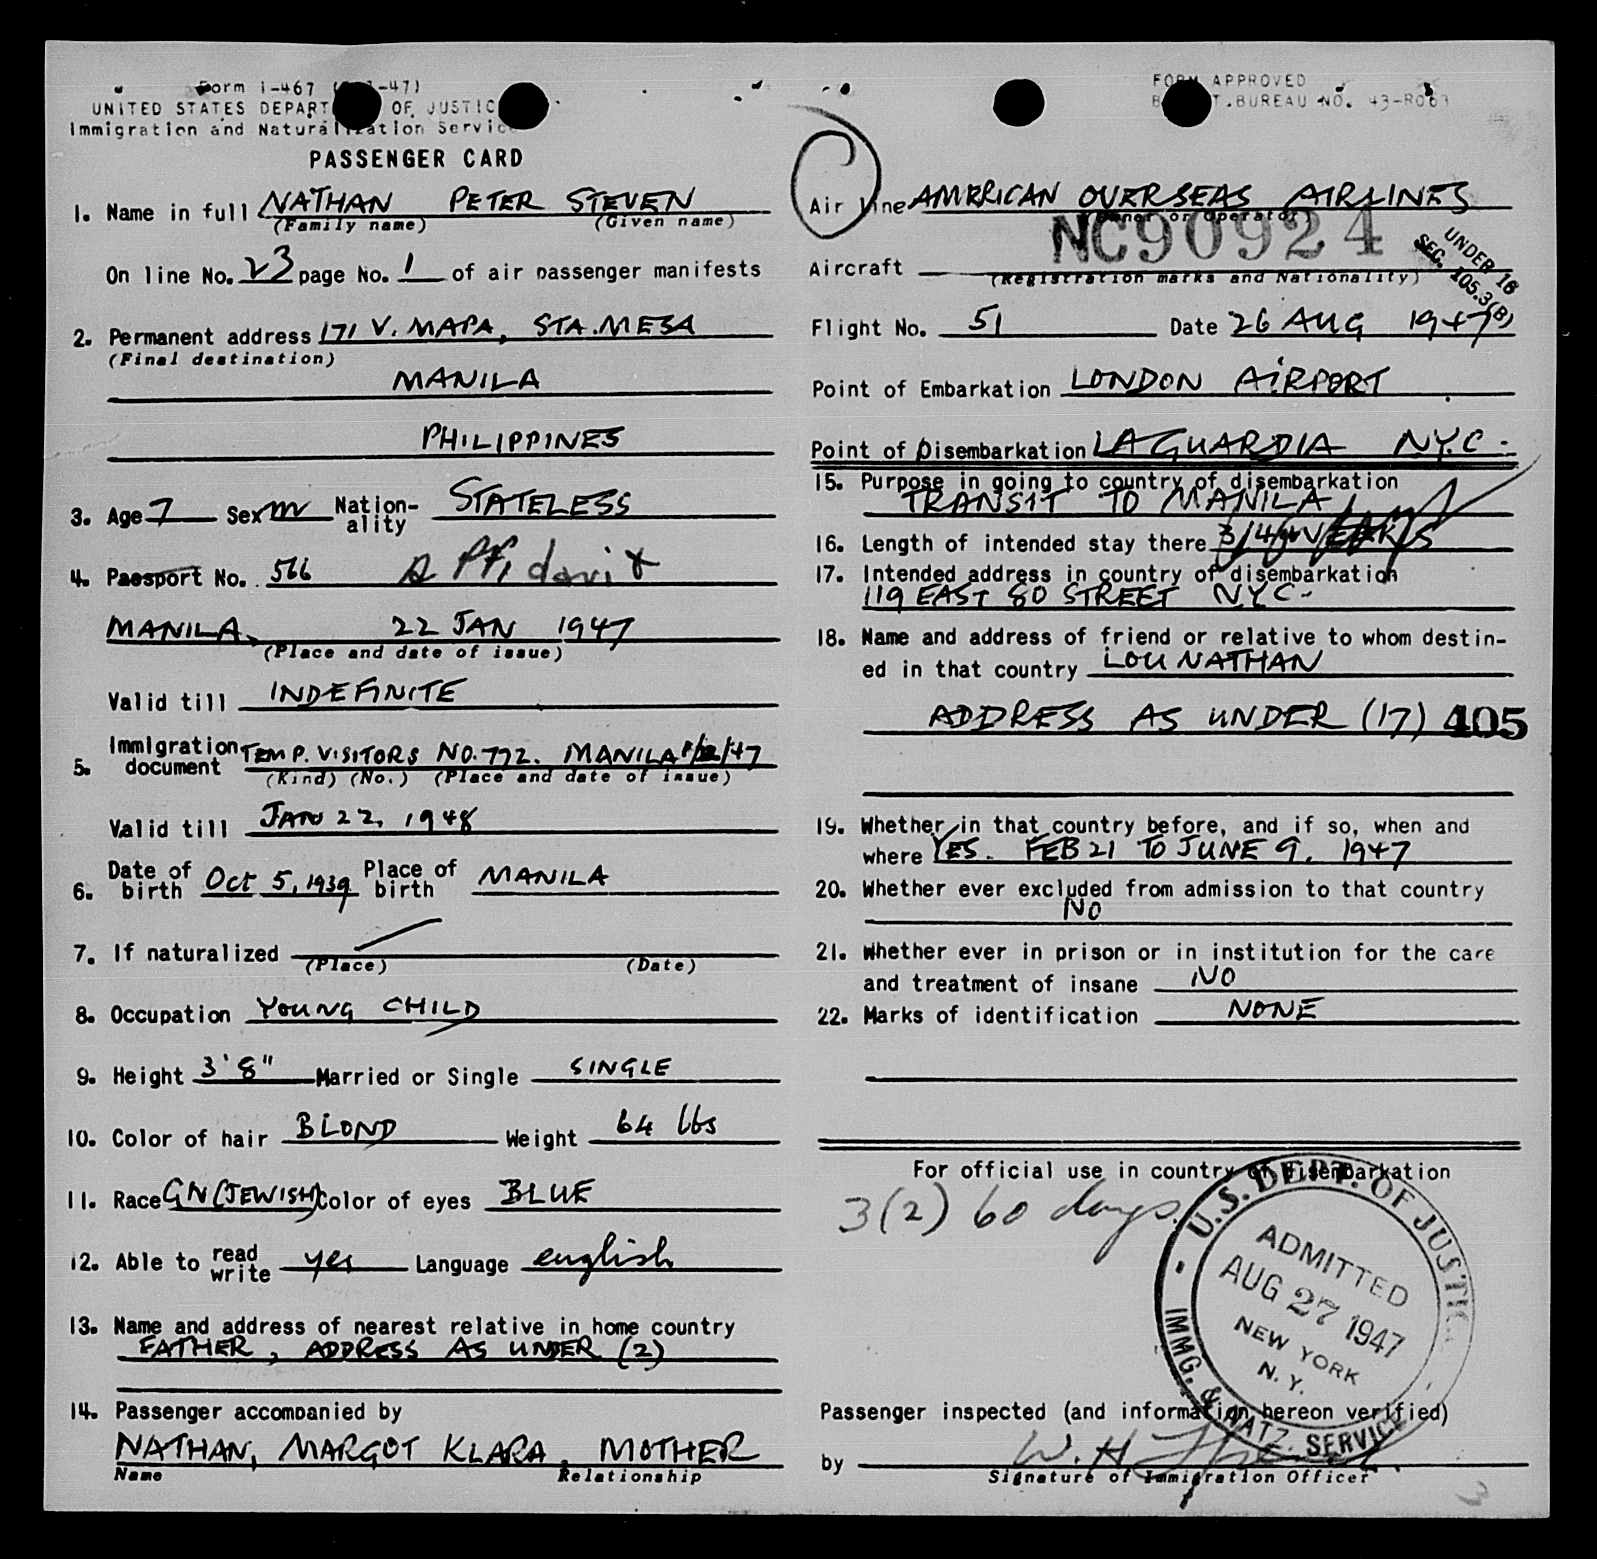 Form I-467 -47)
UNITED STATES DEPART OF JUSTIC
Immigration and Naturalization Servic
PASSENGER CARD
1. Name in full NATHAN PETER STEVEN
(Family name) (Given name)
On line No. 23 page No. 1 of air passenger manifests
2. Permanent address 171 V. MAPA, STA. MESA
(Final destination)
MANILA
PHILIPPINES
3. Age 7 Sex m Nation-ality STATELESS
4. Passport No. 566 Affidavit
MANILA, 22 JAN 1947
(Place and date of issue)
Valid till INDEFINITE
5. Immigration document TEMP. VISITORS NO. 772. MANILA /47
(Kind) (No.) (Place and date of issue)
Valid till JAN 22, 1948
6. Date of birth Oct 5, 1939 Place of birth MANILA
7. If naturalized
(Place) (Date)
8. Occupation YOUNG CHILD
9. Height 3' 8" Married or Single SINGLE
10. Color of hair BLOND Weight 64 lbs
11. Race GN (JEWISH) Color of eyes BLUE
12. Able to read write yes Language english
13. Name and address of nearest relative in home country
FATHER, ADDRESS AS UNDER (2)
14. Passenger accompanied by
NATHAN, MARGOT KLARA, MOTHER
Name Relationship
FORM APPROVED
B T.BUREAU NO. 43-R063
Air line AMERICAN OVERSEAS AIRLINES
(Owner or Operator)
Aircraft NC90924
(Registration marks and Nationality)
UNDER 16
SEC. 105.3(B)
Flight No. 51 Date 26 AUG 1947
Point of Embarkation LONDON AIRPORT
Point of Disembarkation LA GUARDIA N.Y.C.
15. Purpose in going to country of disembarkation
TRANSIT TO MANILA
16. Length of intended stay there 3/4
17. Intended address in country of disembarkation
119 EAST 80 STREET NYC-
18. Name and address of friend or relative to whom destin-
ed in that country LOU NATHAN
ADDRESS AS UNDER (17) 405
19. Whether in that country before, and if so, when and
where YES. FEB 21 TO JUNE 9, 1947
20. Whether ever excluded from admission to that country
NO
21. Whether ever in prison or in institution for the care
and treatment of insane NO
22. Marks of identification NONE
For official use in country of disembarkation
3(2) 60 days.
U.S. DEPT. OF JUSTICE
ADMITTED
AUG 27 1947
NEW YORK
N. Y.
IMMG. & NATZ. SERVICE
Passenger inspected (and information hereon verified)
by W. H.
Signature of Immigration Officer
3